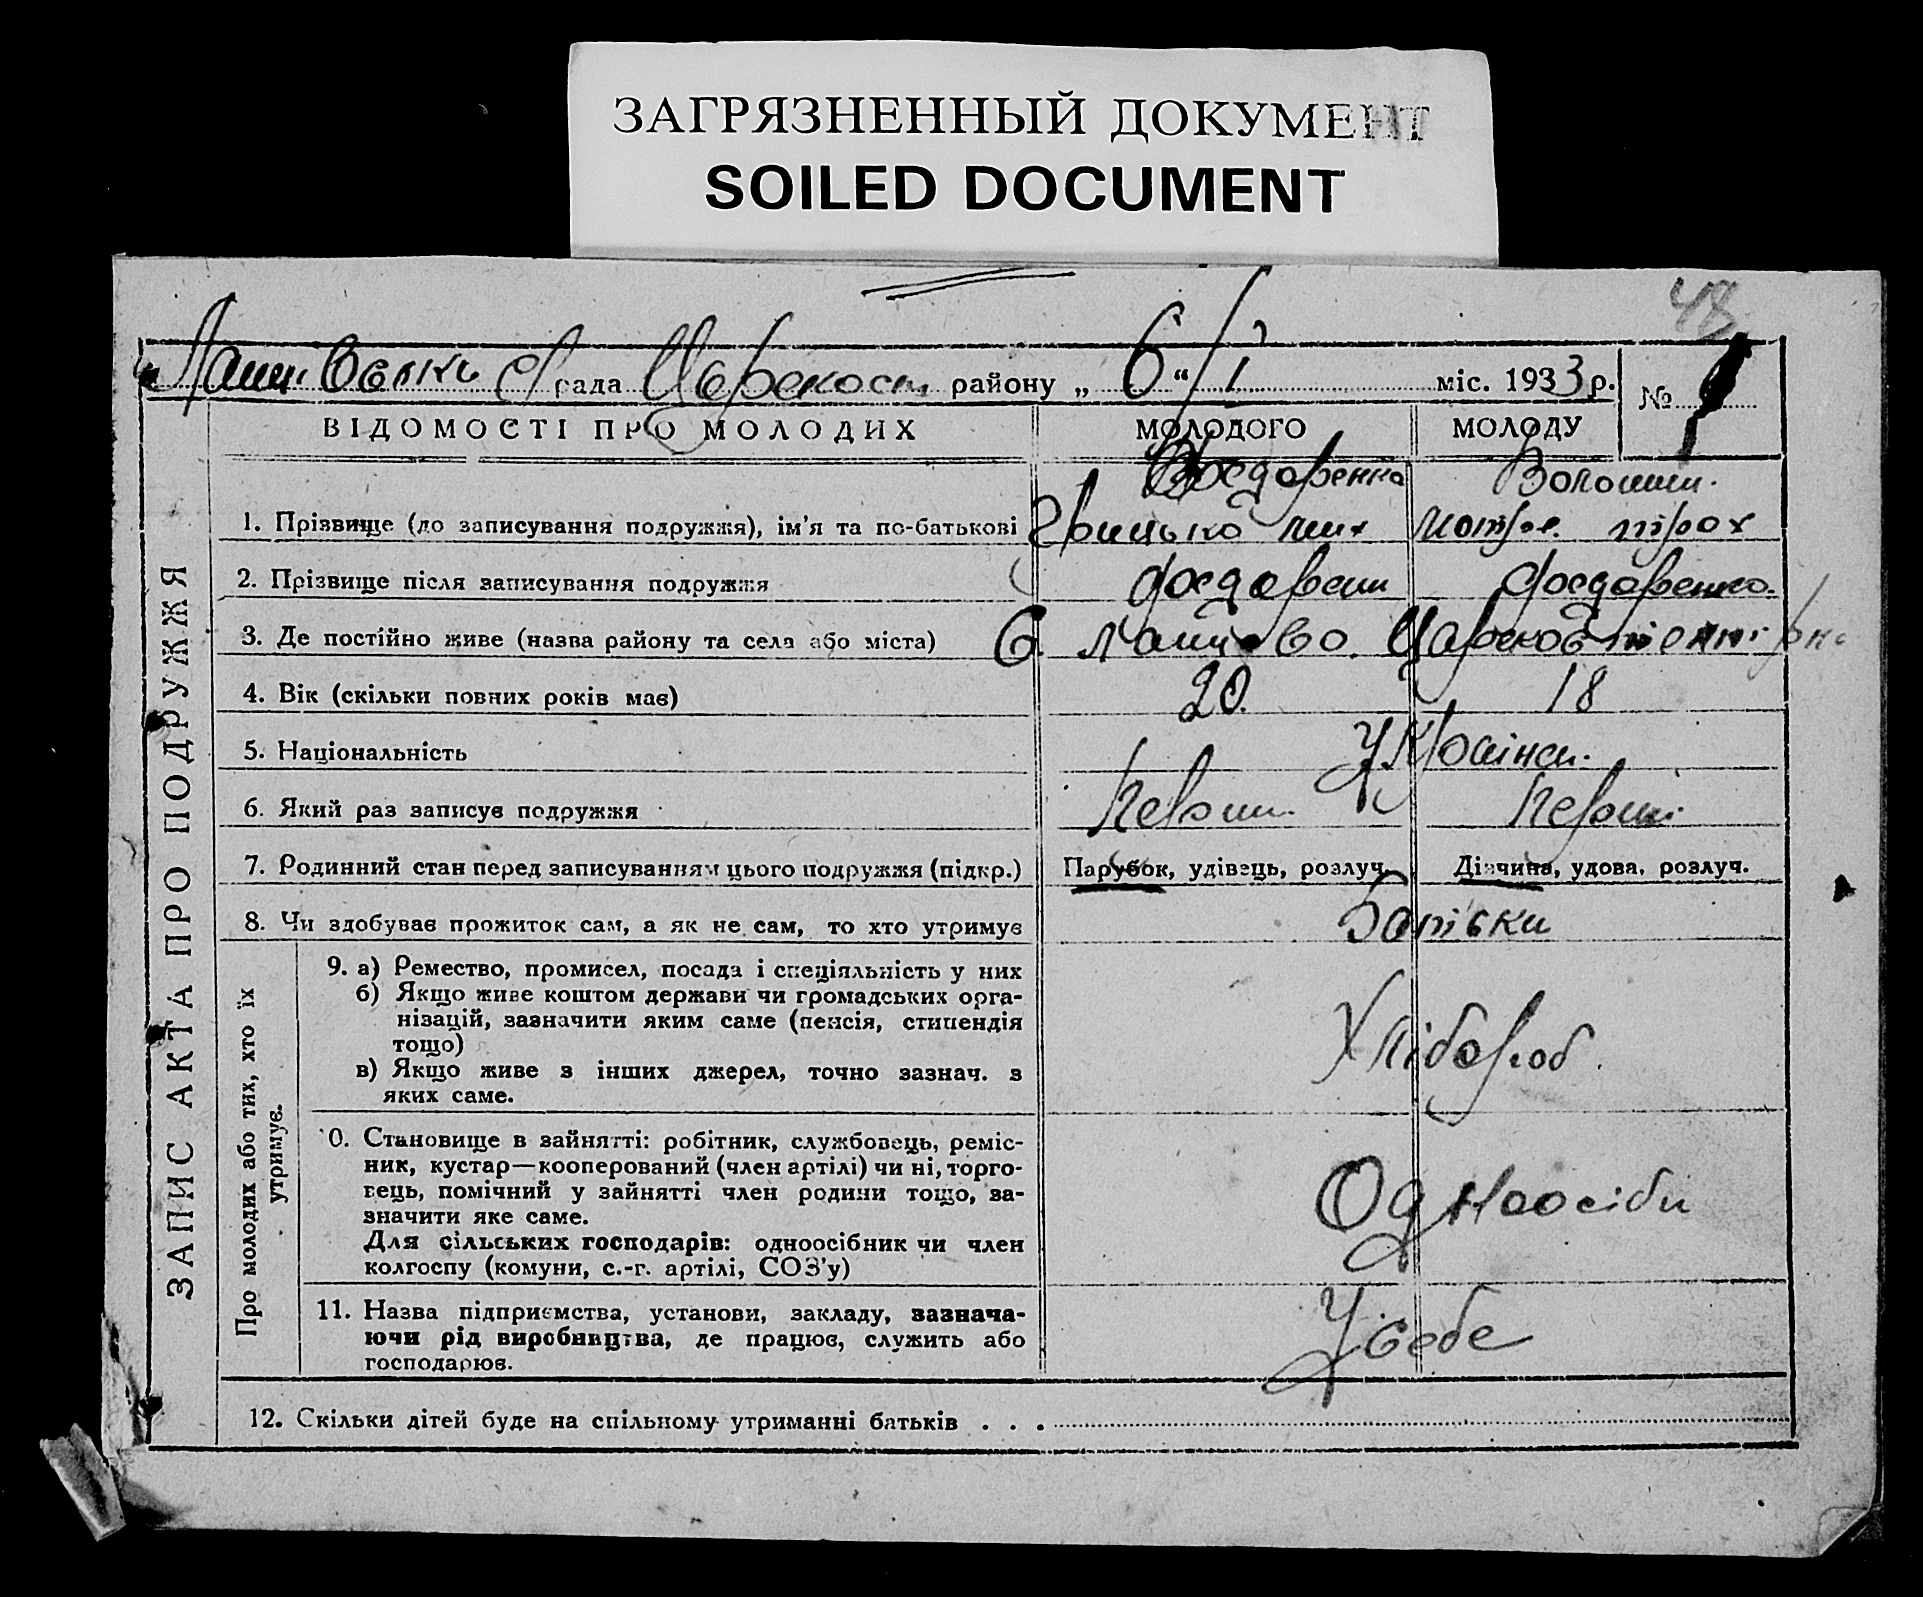 ЗАГРЯЗНЕННЫЙ ДОКУМЕНТ
SOILED DOCUMENT
48
рада району „ 6 “ / I міс. 1933 р. №
ВІДОМОСТІ ПРО МОЛОДИХ МОЛОДОГО МОЛОДУ
Федоренко Волошин.
1. Прізвище (до записування подружжя), ім'я та по-батькові Грицько мих мотря. трох
2. Прізвище після записування подружжя Федорен Федоренко.
3. Де постійно живе (назва району та села або міста) С.
4. Вік (скільки повних років має) 20. 18
5. Національність Украінси.
6. Який раз записує подружжя Перши. Перши.
7. Родинний стан перед записуванням цього подружжя (підкр.) Парубок, удівець, розлуч. Дівчина, удова, розлуч.
8. Чи здобуває прожиток сам, а як не сам, то хто утримує Батьки
ЗАПИС АКТА ПРО ПОДРУЖЖЯ
Про молодих або тих, хто їх
утримує.
9. а) Ремество, промисел, посада і спеціяльність у них
б) Якщо живе коштом держави чи громадських орга-
нізацій, зазначити яким саме (пенсія, стипендія
тощо)
в) Якщо живе з інших джерел, точно зазнач. з
яких саме.
Хлібороб.
10. Становище в зайнятті: робітник, службовець, реміс-
ник, кустар—кооперований (член артілі) чи ні, торго-
вець, помічний у зайнятті член родини тощо, за-
значити яке саме.
Для сільських господарів: одноосібник чи член
колгоспу (комуни, с.-г. артілі, СОЗ'у)
Одноосіби
11. Назва підприємства, установи, закладу, зазнача-
ючи рід виробництва, де працює, служить або
господарює.
У себе
12. Скільки дітей буде на спільному утриманні батьків . . .